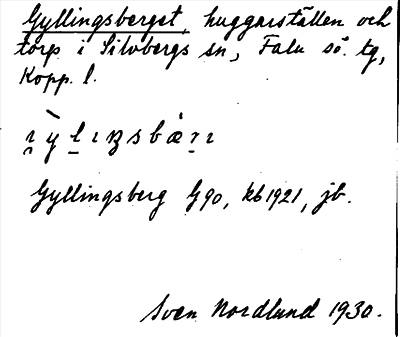 Gyllingsberget, huggarställen och
torp i Silvbergs sn, Falu sö. tg,
Kopp. l.
Gyllingsberg G90, kb 1921, jb.
Sven Nordlund 1930.